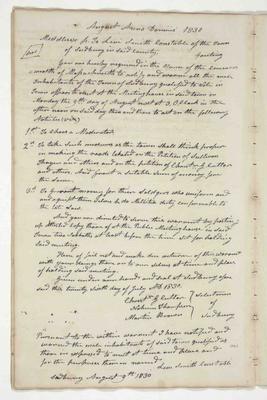 August Anno Domini 1830
Middlesex Ss. To Levi Smith Constable of the Town
of Sudbury in said County. Greeting
You are hereby required in the Name of the Common
wealth of Massachusetts to notify and warn all the male
inhabitants of the Town of Sudbury qualified to vote in
Town affairs to meet at the Meetinghouse in said town on
Monday the 9th day of August next at 3 O,Clock in the
afternoon on said day then and there to act on the following
Articles (viz)
1st To choose a Moderator.
2d To take such measures as the Town shall think proper
in making the roads on the Petition of
and others and on the petition of Christr G Cutler
and others And grant a suitable sum of money for
the same.
3d To grant money for their Soldiers who uniform and
and equip them selves & do Military duty conformable to
the late Law.
And you are directed to serve this warrant by posting
up attested copy there of at the Public Meeting house in said
Town two Sabbaths at least before the time set for holding
said meeting.
Here of fail not and make due return of this warrant
with your doings there on to us at time and place
of holding said meeting.
Given under our hands and Seal at Sudbury afore
said this twenty Sixth day of July AD. 1830.
Christr G Cutler } Selectmen
Thompson } of
Martin } Sudbury
Pursuant to the within warrant I have notified and
warned the male inhabitants of said town qualified as
there in expressed to meet at time and place and
for the purposes there in named
Levi Smith Constable
Sudbury August 9th 1830